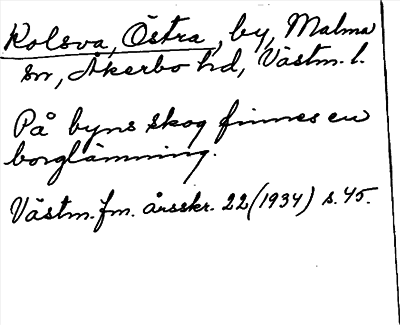 Kolsva, Östra, by, Malma
sn, Åkerbo hd, Västm. l.
På byns skog finnes en
borglämning.
Västm. fm. årsskr. 22 (1934) s. 45.